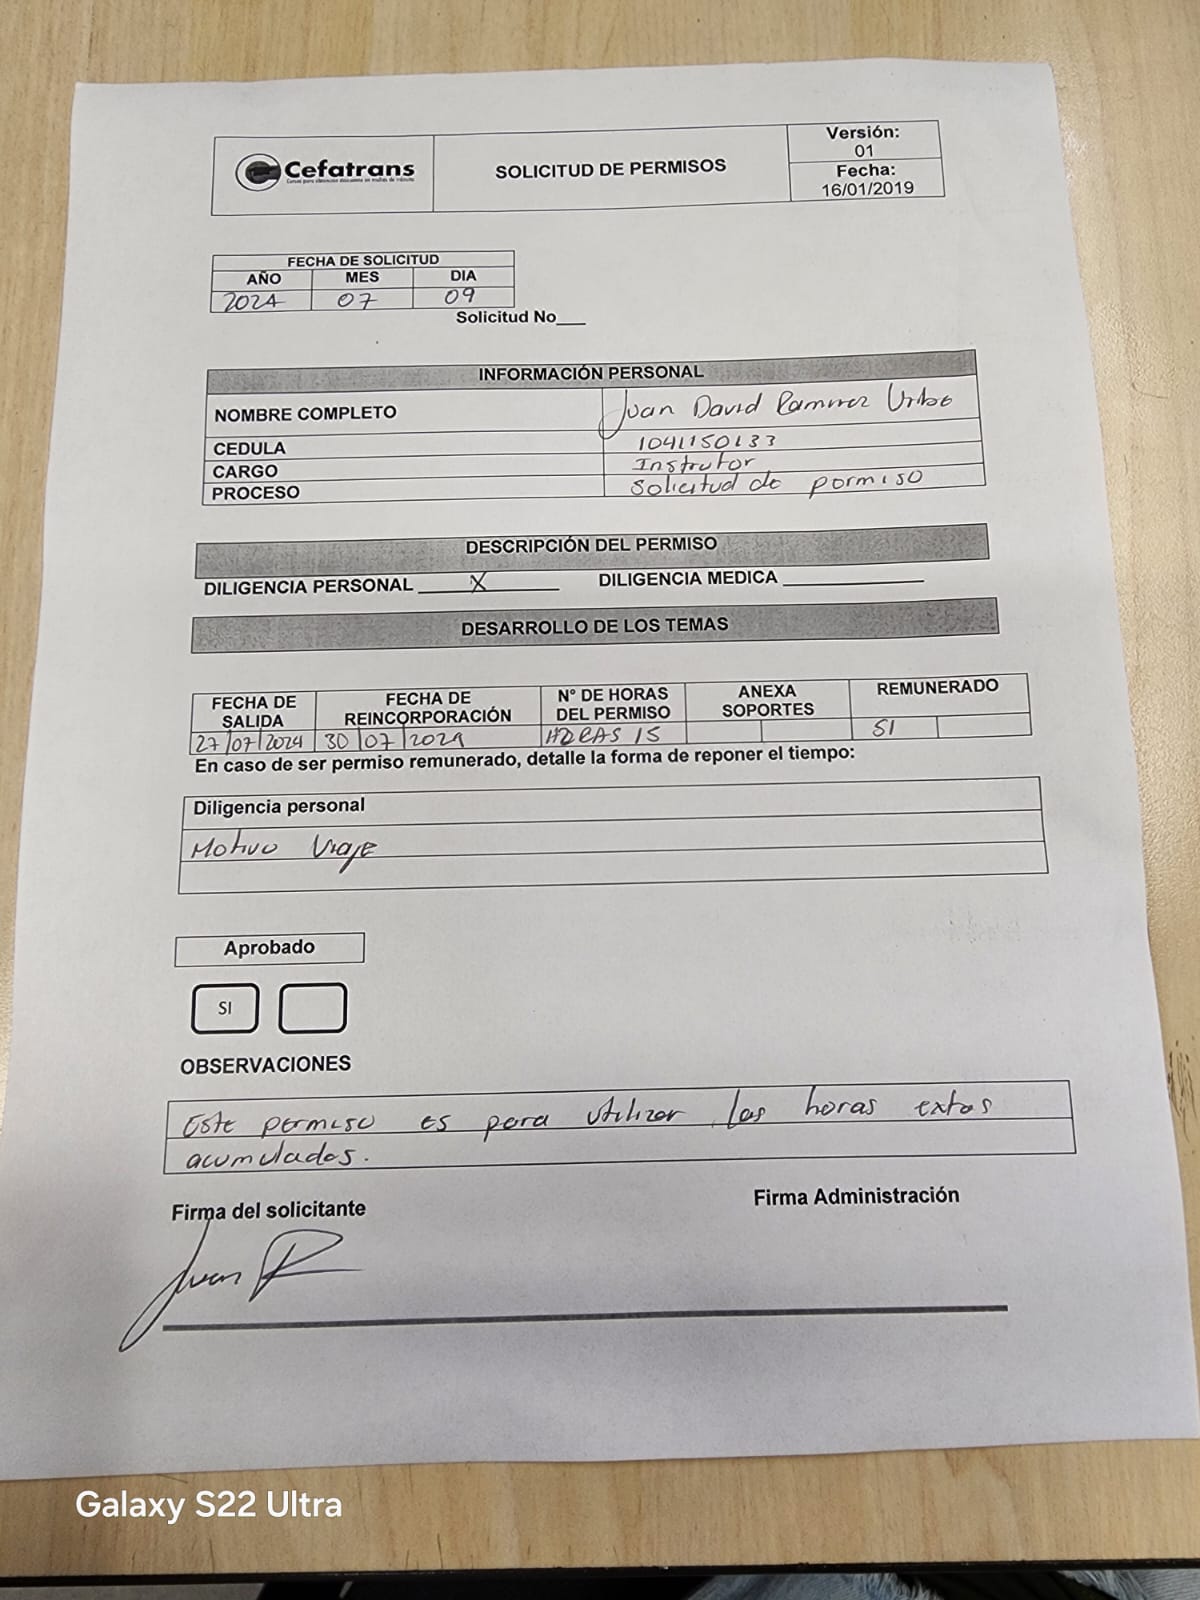 Cefatrans
SOLICITUD DE PERMISOS
Versión:
01
Fecha:
16/01/2019
FECHA DE SOLICITUD
AÑO MES DIA
2024 07 09
Solicitud No___
INFORMACIÓN PERSONAL
NOMBRE COMPLETO Juan David Ramirez Uribe
CEDULA 1041150133
CARGO Instrutor
PROCESO Solicitud de permiso
DESCRIPCIÓN DEL PERMISO
DILIGENCIA PERSONAL X DILIGENCIA MEDICA
DESARROLLO DE LOS TEMAS
FECHA DE SALIDA FECHA DE REINCORPORACIÓN N° DE HORAS DEL PERMISO ANEXA SOPORTES REMUNERADO
27 07 2024 30 07 2024 HORAS 15 SI
En caso de ser permiso remunerado, detalle la forma de reponer el tiempo:
Diligencia personal
Motivo Viaje
Aprobado
SI
OBSERVACIONES
Este permiso es para utilizar las horas extas
acumulados.
Firma del solicitante Firma Administración
Juan R
Galaxy S22 Ultra